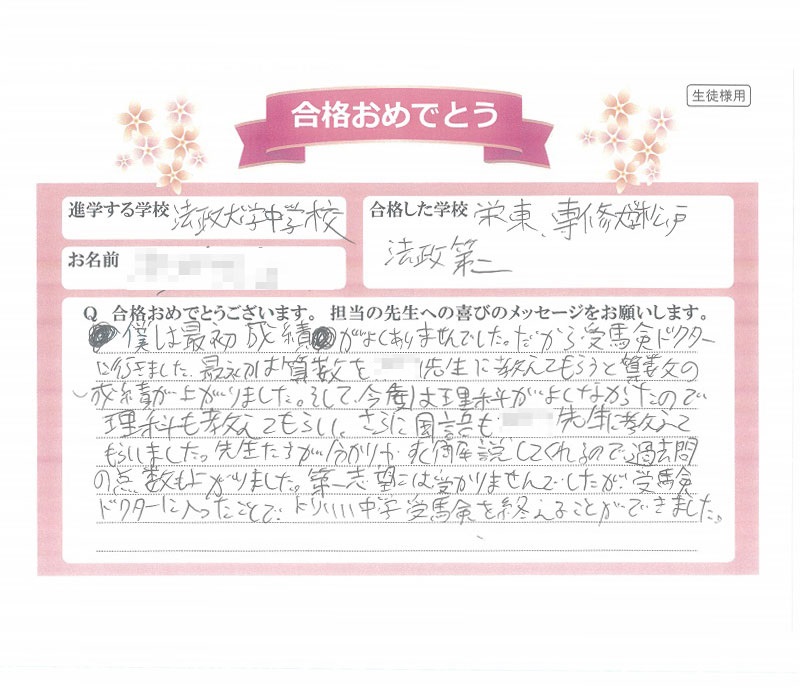 生徒様用
合格おめでとう
進学する学校 法政大学中学校
合格した学校 栄東、専修大学松戸
法政第二
お名前
Q 合格おめでとうございます。担当の先生への喜びのメッセージをお願いします。
僕は最初成績がよくありませんでした。だから受験ドクター
に行きました。最初は算数を 先生に教えてもらうと算数の
成績が上がりました。そして、今度は理科がよくなかったので
理科も教えてもらい、さらに国語も 先生に教えて
もらいました。先生たちが分かりやすく解説してくれるので過去問
の点数も上がりました。第一志望には受かりませんでしたが受験
ドクターに入ったことで、よりいい中学受験を終えることができました。